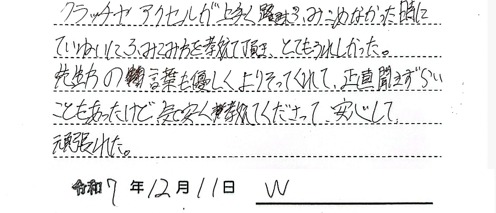 クラッチやアクセルが上手く踏めず、ふみこめなかった時に
ていねいにふみこみ方を教えて頂き、とてもうれしかった。
先生方の言葉も優しくよりそってくれて、正直聞きずらい
こともあったけど気安く教えてくださって、安心して
頑張れた。
令和7年12月11日 W